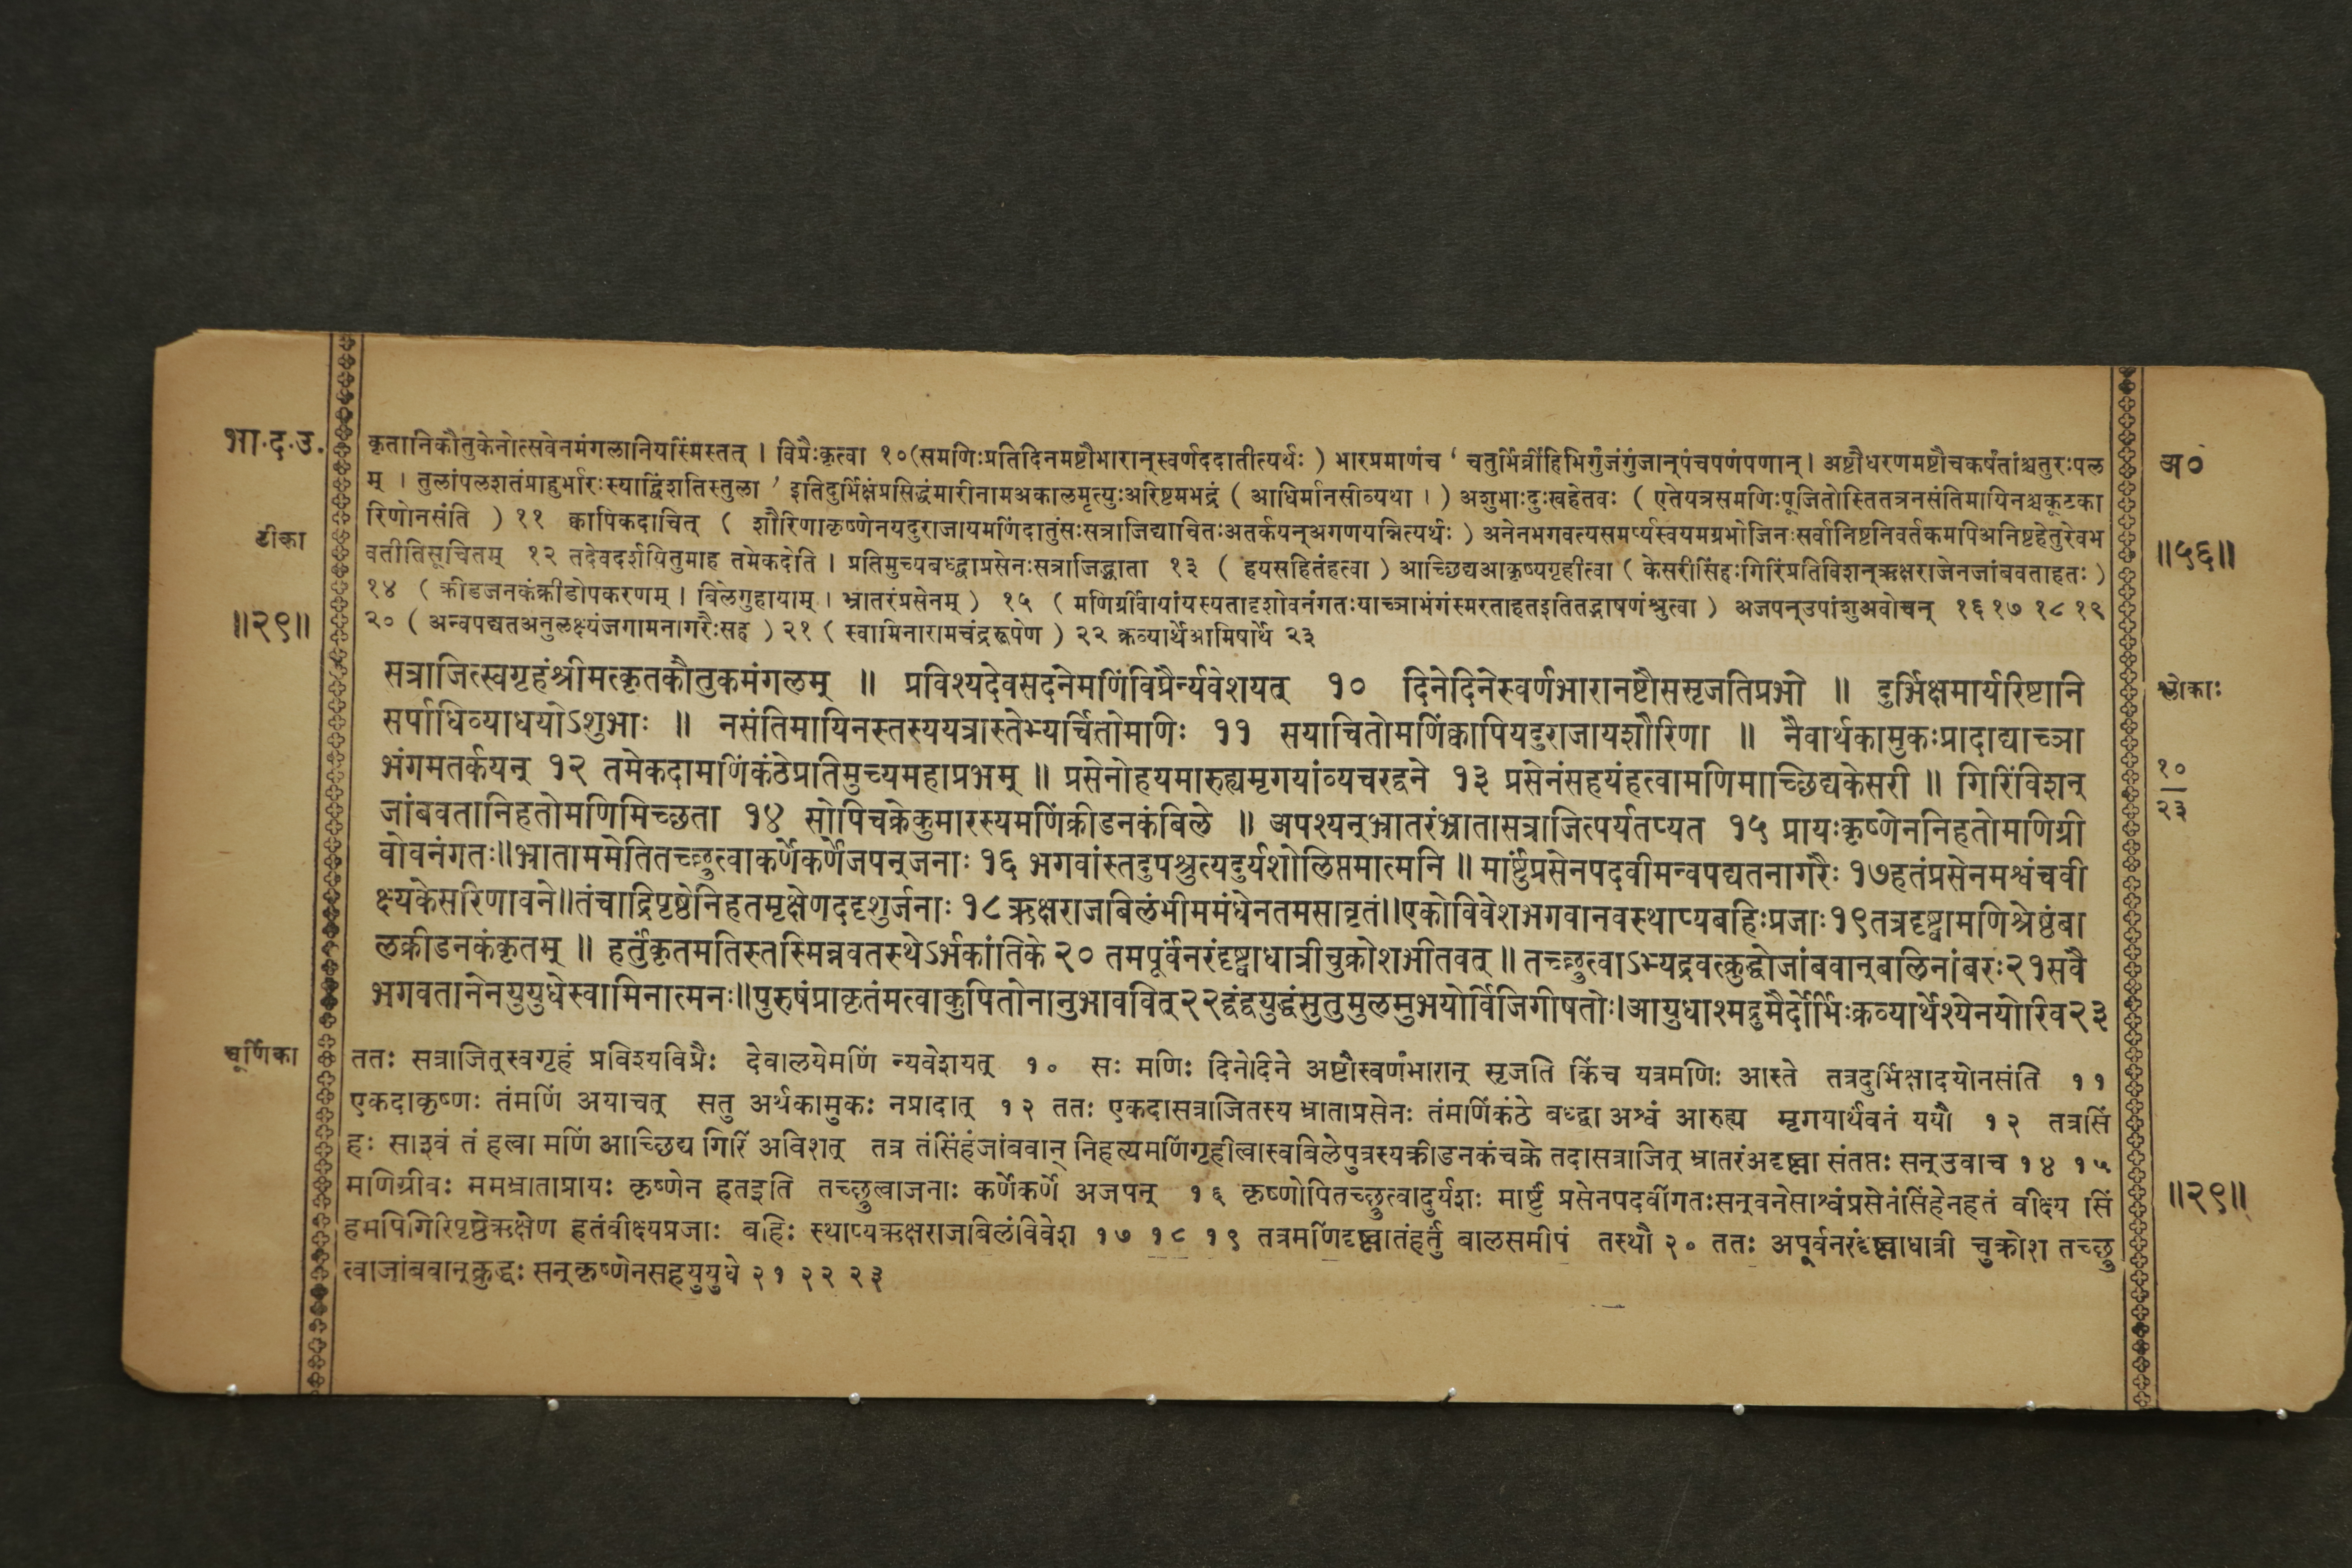 भा.द.उ.
टीका
॥२९॥
कृतानिकौतुकेनोत्सवेनमंगलानियस्मिंस्तत् । विप्रैःकृत्वा १०(समणिःप्रतिदिनमष्टौभारान्स्वर्णंददातीत्यर्थः ) भारप्रमाणंच ‘ चतुर्भिर्व्रीहिभिर्गुंजंगुंजान्पंचपणंपणान् । अष्टौधरणमष्टौचकर्षंतांश्चतुरःपल
म् । तुलांपलशतंप्राहुर्भारःस्याद्विंशतिस्तुला ’ इतिदुर्भिक्षंप्रसिद्धंमारीनामअकालमृत्युःअरिष्टमभद्रं ( आधिर्मानसीव्यथा । ) अशुभाःदुःखहेतवः ( एतेयत्रसमणिःपूजितोस्तितत्रनसंतिमायिनश्चकूटका
रिणोनसंति ) ११ क्वापिकदाचित् ( शौरिणाकृष्णेनयदुराजायमणिंदातुंसःसत्राजिद्याचितःअतर्कयन्अगणयन्नित्यर्थः ) अनेनभगवत्यसमर्प्यस्वयमग्रभोजिनःसर्वानिष्टनिवर्तकमपिअनिष्टहेतुरेवभ
वतीतिसूचितम् १२ तदेवदर्शयितुमाह तमेकदेति । प्रतिमुच्यबध्द्वाप्रसेनःसत्राजिद्भ्राता १३ ( हयसहितंहत्वा ) आच्छिद्यआकृष्यगृहीत्वा ( केसरीसिंहःगिरिंप्रतिविशन्ऋक्षराजेनजांबवताहतः )
१४ ( क्रीडजनकंक्रीडोपकरणम् । बिलेगुहायाम् । भ्रातरंप्रसेनम् ) १५ ( मणिर्ग्रीवायांयस्यतादृशोवनंगतःयाच्ञाभंगंस्मरताहतइतितद्भाषणंश्रुत्वा ) अजपन्उपांशुअवोचन् १६ १७ १८ १९
२० ( अन्वपद्यतअनुलक्ष्यंजगामनागरैःसह ) २१ ( स्वामिनारामचंद्ररूपेण ) २२ क्रव्यार्थेआमिषार्थे २३
सत्राजित्स्वगृहंश्रीमत्कृतकौतुकमंगलम् ॥ प्रविश्यदेवसदनेमणिंविप्रैर्न्यवेशयत् १० दिनेदिनेस्वर्णभारानष्टौससृजतिप्रभो ॥ दुर्भिक्षमार्यरिष्टानि
सर्पाधिव्याधयोऽशुभाः ॥ नसंतिमायिनस्तस्ययत्रास्तेभ्यर्चितोमणिः ११ सयाचितोमणिंक्वापियदुराजायशौरिणा ॥ नैवार्थकामुकःप्रादाद्याच्ञा
भंगमतर्कयन् १२ तमेकदामणिंकंठेप्रतिमुच्यमहाप्रभम् ॥ प्रसेनोहयमारुह्यमृगयांव्यचरद्वने १३ प्रसेनंसहयंहत्वामणिमाच्छिद्यकेसरी ॥ गिरिंविशन्
जांबवतानिहतोमणिमिच्छता १४ सोपिचक्रेकुमारस्यमणिंक्रीडनकंबिले ॥ अपश्यन्भ्रातरंभ्रातासत्राजित्पर्यतप्यत १५ प्रायःकृष्णेननिहतोमणिग्री
वोवनंगतः॥भ्राताममेतितच्छ्रुत्वाकर्णेकर्णेजपन्जनाः १६ भगवांस्तदुपश्रुत्यदुर्यशोलिप्तमात्मनि ॥ मार्ष्टुंप्रसेनपदवीमन्वपद्यतनागरैः १७हतंप्रसेनमश्वंचवी
क्ष्यकेसरिणावने॥तंचाद्रिपृष्ठेनिहतमृक्षेणददृशुर्जनाः १८ ऋक्षराजबिलंभीममंधेनतमसावृतं॥एकोविवेशभगवानवस्थाप्यबहिःप्रजाः१९तत्रदृष्ट्वामणिश्रेष्ठंबा
लक्रीडनकंकृतम् ॥ हर्तुंकृतमतिस्तस्मिन्नवतस्थेऽर्भकांतिके २० तमपूर्वंनरंदृष्ट्वाधात्रीचुक्रोशभीतवत् ॥ तच्छ्रुत्वाऽभ्यद्रवत्क्रुद्धोजांबवान्बलिनांबरः२१सवै
भगवतानेनयुयुधेस्वामिनात्मनः॥पुरुषंप्राकृतंमत्वाकुपितोनानुभाववित्२२द्वंद्वयुद्धंसुतुमुलमुभयोर्विजिगीषतोः।आयुधाश्मद्रुमैर्दोर्भिःक्रव्यार्थेश्येनयोरिव२३
चूर्णिका
ततः सत्राजित्स्वगृहं प्रविश्यविप्रैः देवालयेमणिं न्यवेशयत् १० सः मणिः दिनेदिने अष्टौस्वर्णभारान् सृजति किंच यत्रमणिः आस्ते तत्रदुर्भिक्षादयोनसंति ११
एकदाकृष्णः तंमणिं अयाचत् सतु अर्थकामुकः नप्रादात् १२ ततः एकदासत्राजितस्य भ्राताप्रसेनः तंमणिंकंठे बध्द्वा अश्वं आरुह्य मृगयार्थंवनं ययौ १२ तत्रसिं
हः साश्वं तं हत्वा मणिं आच्छिद्य गिरिं अविशत् तत्र तंसिंहंजांबवान् निहत्यमणिंगृहीत्वास्वबिलेपुत्रस्यक्रीडनकंचक्रे तदासत्राजित् भ्रातरंअदृष्ट्वा संतप्तः सन्उवाच १४ १५
मणिग्रीवः ममभ्राताप्रायः कृष्णेन हतइति तच्छ्रुत्वाजनाः कर्णेकर्णे अजपन् १६ कृष्णोपितच्छ्रुत्वादुर्यशः मार्ष्टुं प्रसेनपदवींगतःसन्वनेसाश्वंप्रसेनंसिंहेनहतं वीक्ष्य सिं
हमपिगिरिपृष्ठेऋक्षेण हतंवीक्ष्यप्रजाः बहिः स्थाप्यऋक्षराजबिलंविवेश १७ १८ १९ तत्रमणिंदृष्ट्वातंहर्तुं बालसमीपं तस्थौ २० ततः अपूर्वनरंदृष्ट्वाधात्री चुक्रोश तच्छ्रु
त्वाजांबवान्क्रुद्धः सन्कृष्णेनसहयुयुधे २१ २२ २३
अ०
॥५६॥
श्लोकाः
१०
२३
॥२९॥